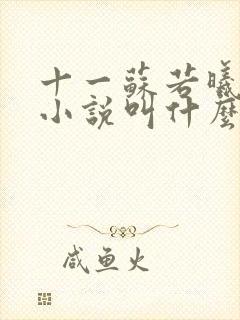 十一蘇若曦
小說叫什麼
咸鱼火